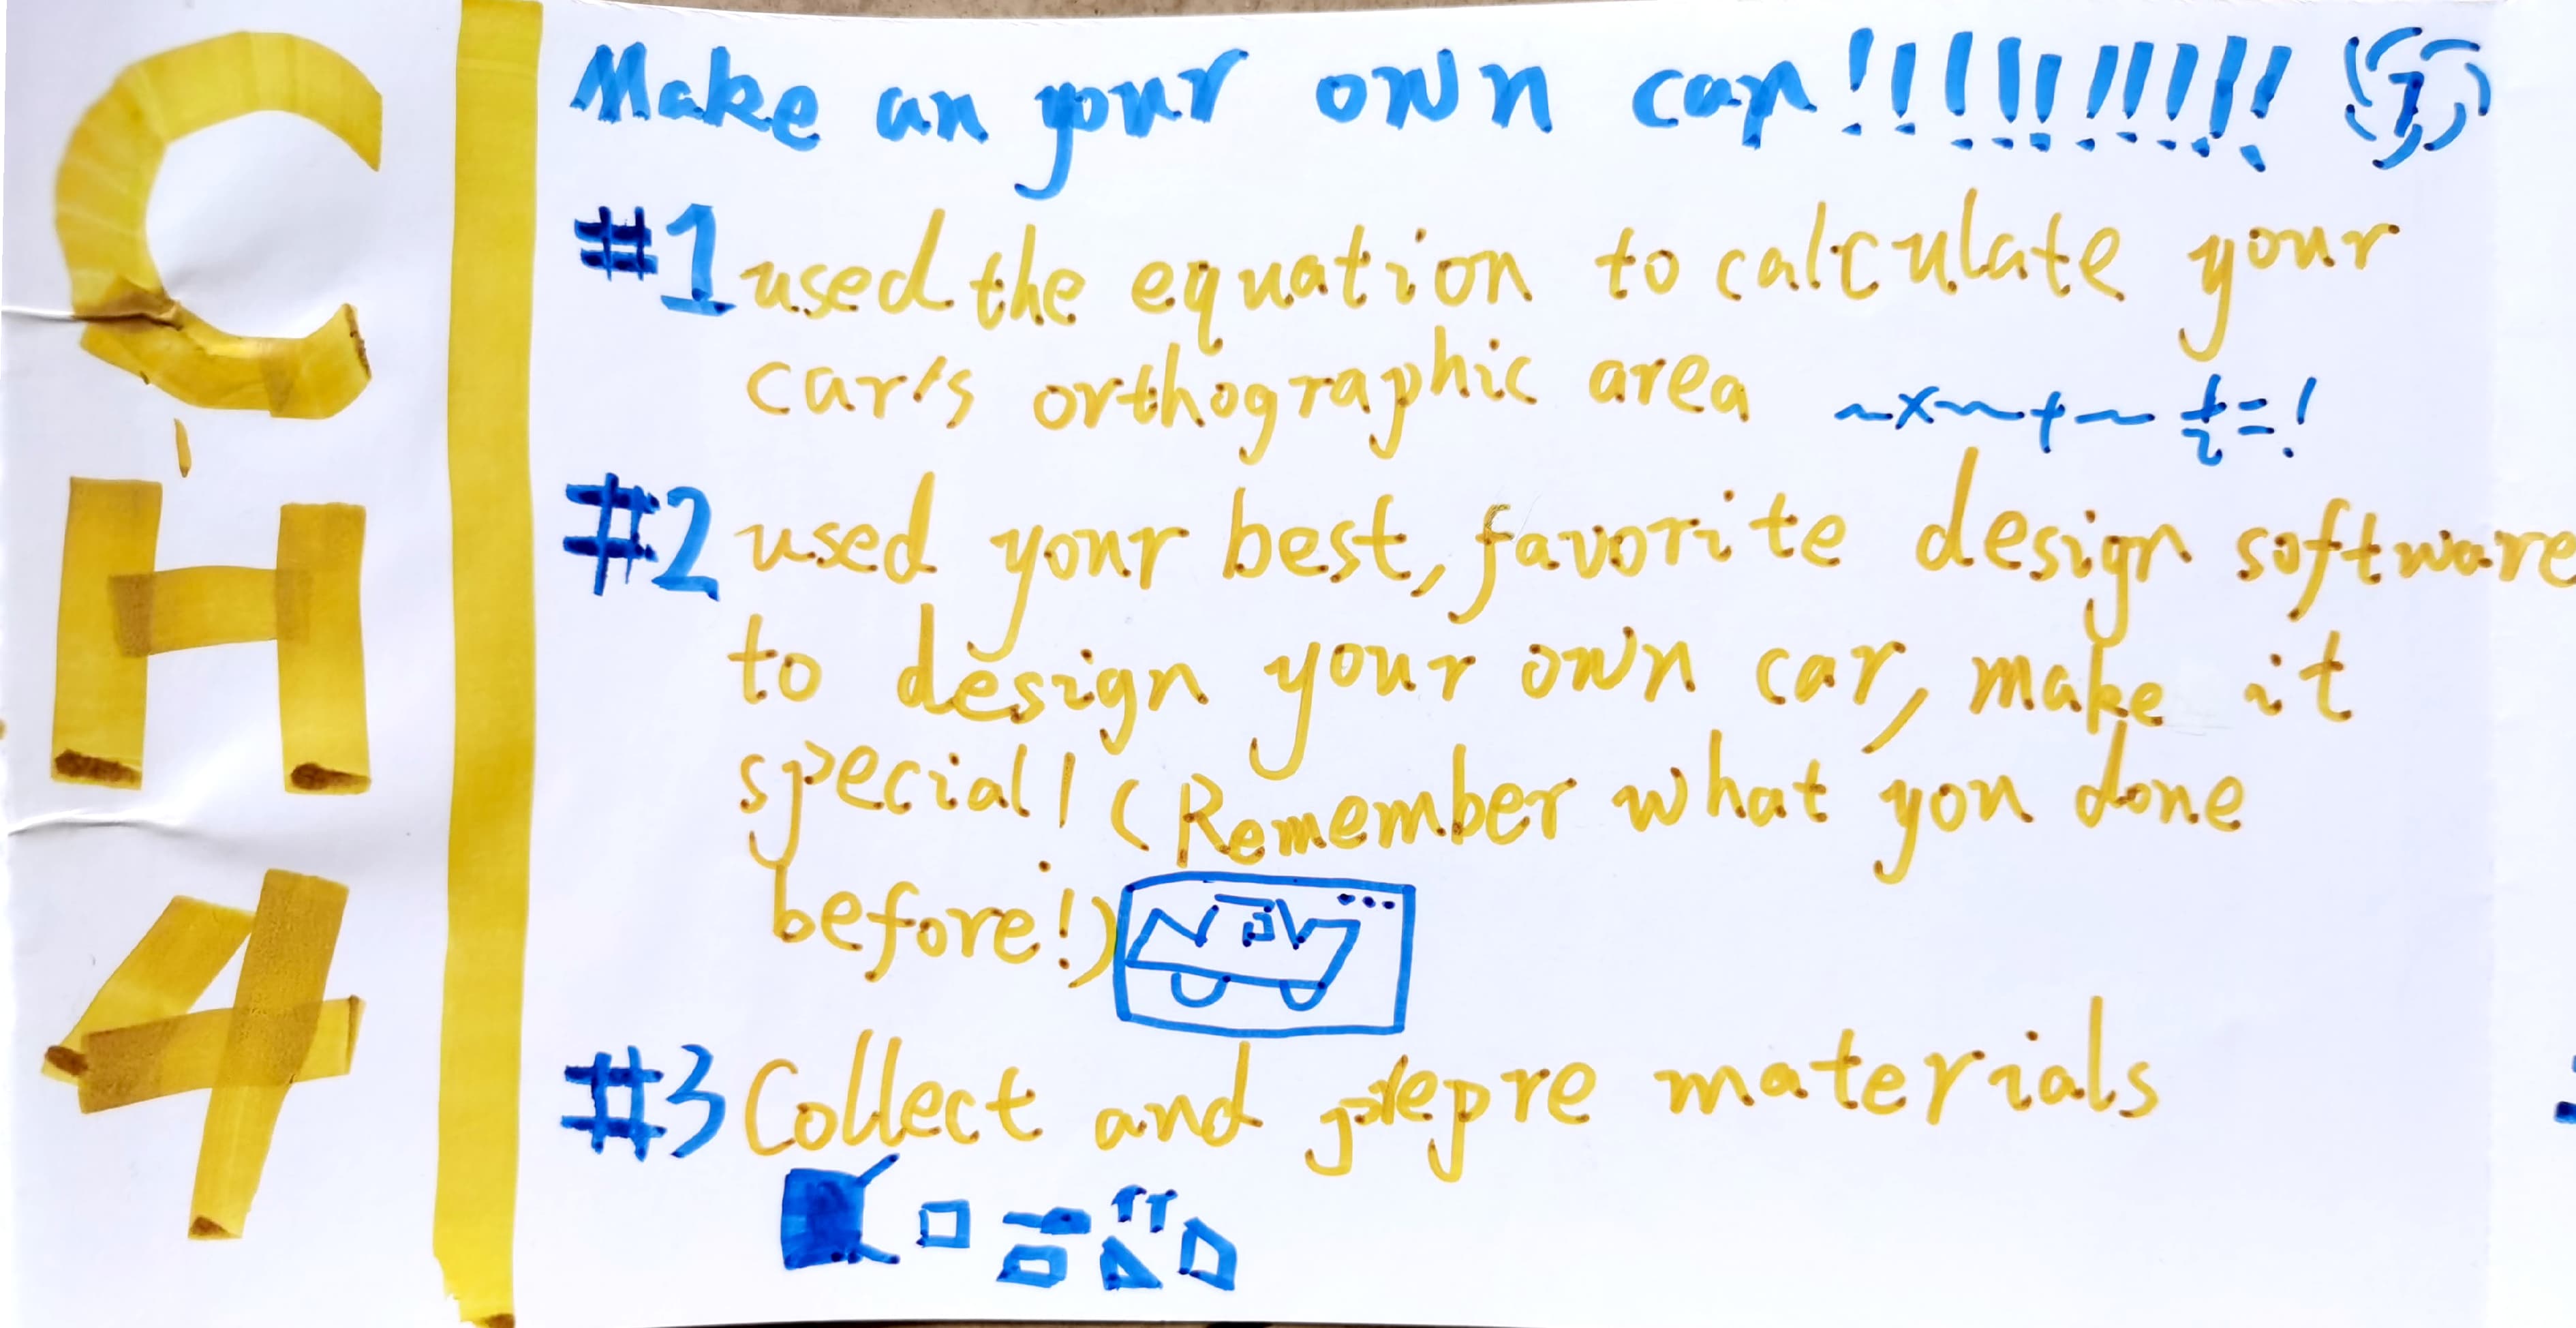 CH4
Make an your own car!!!!!!!!!!
#1 used the equation to calculate your
car's orthographic area ~x~+~ ÷=!
#2 used your best, favorite design software
to design your own car, make it
special! (Remember what you done
before!)
#3 Collect and prepre materials